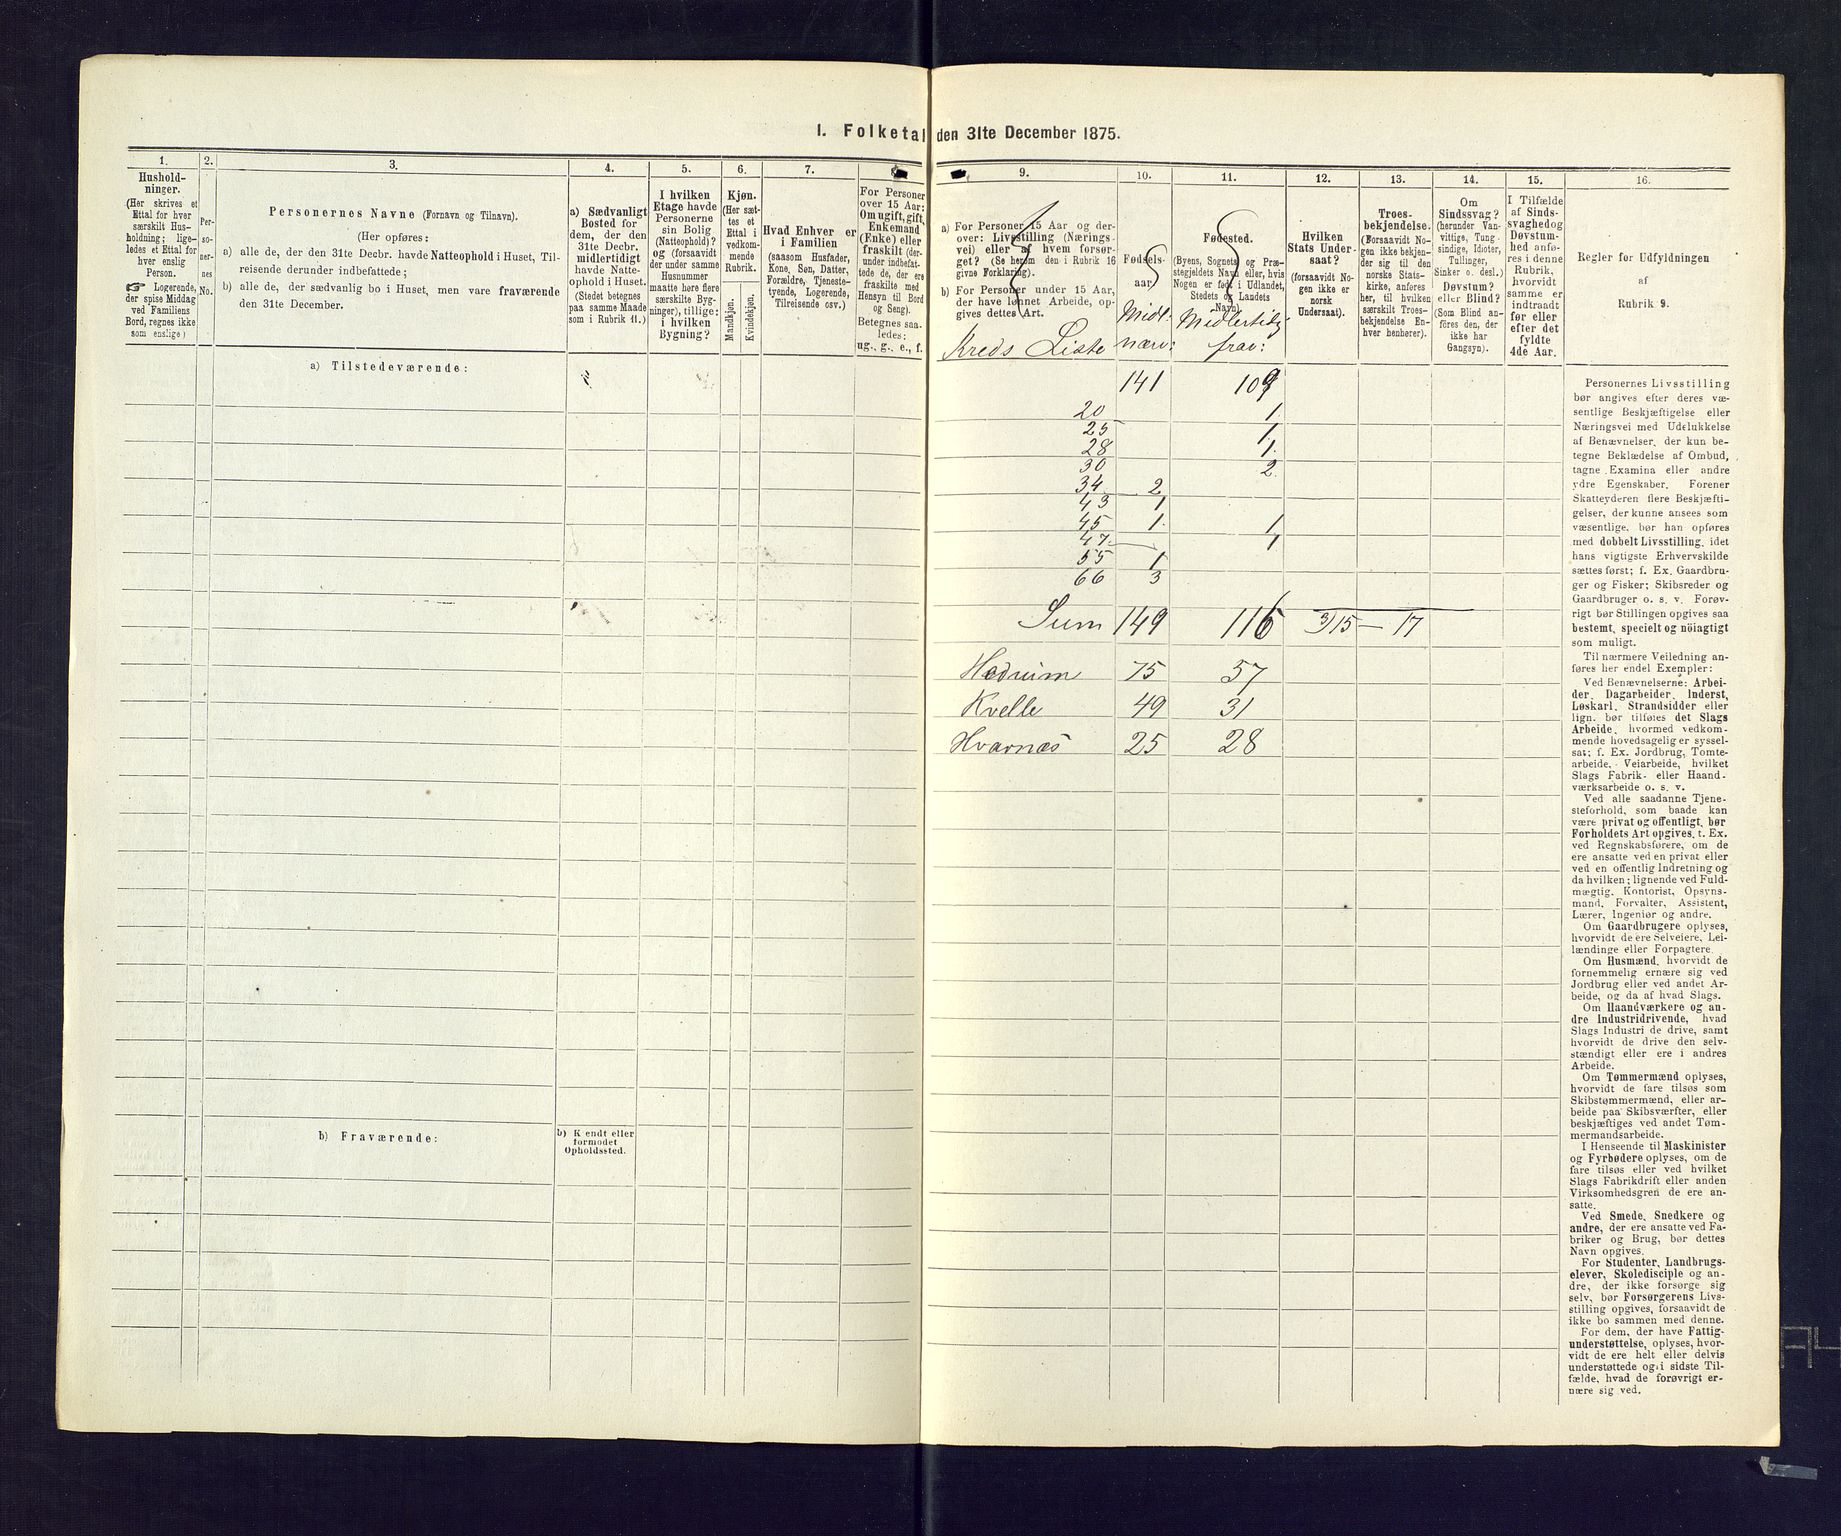 I. Folketal den 31te December 1875.
1.
Hushold-
ninger.
(Her skrives et
Ettal for hver
særskilt Hus-
holdning; lige-
ledes et Ettal for
hver enslig
Person.
☞ Logerende,
der spise Middag
ved Familiens
Bord, regnes ikke
som enslige)
2.
Per-
so-
ner-
nes
No.
3.
Personernes Navne (Fornavn og Tilnavn).
(Her opføres:
a) alle de, der den 31te Decbr. havde Natteophold i Huset, Til-
reisende derunder indbefattede;
b) alle de, der sædvanlig bo i Huset, men vare fraværende
den 31te December.
4.
a) Sædvanligt
Bosted for
dem, der den
31te Decbr.
midlertidigt
havde Natte-
ophold i Huset.
(Stedet betegnes
paa samme Maade
som i Rubrik 11.)
5.
I hvilken
Etage havde
Personerne
sin Bolig
(Natteophold)?
og (forsaavidt
der under samme
Husnummer
maatte høre flere
særskilte Byg-
ninger), tillige:
i hvilken
Bygning?
6.
Kjøn.
(Her sæt-
tes et
Ettal i
vedkom-
mende
Rubrik.
Mandkjøn.
Kvindekjøn.
7.
Hvad Enhver er
i Familien
(saasom Husfader,
Kone, Søn, Datter,
Forældre, Tjeneste-
tyende, Logerende,
Tilreisende osv.)
For Personer
over 15 Aar:
Om ugift, gift,
Enkemand
(Enke) eller
fraskilt (der-
under indbefat-
tede de, der ere
fraskilte med
Hensyn til Bord
og Seng).
Betegnes saa-
ledes:
ug., g., e., f.
9.
a) For Personer 15 Aar og der-
over: Livsstilling (Nærings-
vei) eller af hvem forsør-
get? (Se herom den i Rubrik 16
givne Forklaring).
b) For Personer under 15 Aar,
der have lønnet Arbeide, op-
gives dettes Art.
Kreds Liste
10.
Fødsels-
aar.
Midl:
nærv:
11.
Fødested.
(Byens, Sognets og Præ-
stegjeldets Navn eller, hvis
Nogen er født i Udlandet,
Stedets og Landets
Navn)
Midlertidig
frav:
12.
Hvilken
Stats Under-
saat?
(forsaavidt No-
gen ikke er
norsk
Undersaat).
13.
Troes-
bekjendelse.
(Forsaavidt No-
gen ikke bekjen-
der sig til den
norske Stats-
kirke, anføres
her, til hvilken
særskilt Troes-
bekjendelse En-
hver henhører).
14.
Om
Sindssvag?
(herunder Van-
vittige, Tung-
sindige, Idioter,
Tullinger,
Sinker o. desl.)
Døvstum?
eller Blind?
(Som Blind an-
føres den, der
ikke har
Gangsyn).
15.
I Tilfælde
af Sinds-
svaghed og
Døvstum-
hed anfø-
res i denne
Rubrik,
hvorvidt
samme er
indtraadt
før eller
efter det
fyldte
4de Aar.
16.
Regler for Udfyldningen
af
Rubrik 9.
a) Tilstedeværende:
141 109
20 1.
25 1.
28 1.
30 2.
34 2
43 1
45 1. 1
47 1
55 1
66 3
Sum 149 116 3/15 — 17
Hedrum 75 57
Kvelle 49 31
Hvarnæs 25 28
b) Fraværende:
b) Kjendt eller
formodet
Opholdssted.
Personernes Livsstilling
bør angives efter deres væ-
sentlige Beskjæftigelse eller
Næringsvei med Udelukkelse
af Benævnelser, der kun be-
tegne Beklædelse af Ombud,
tagne Examina eller andre
ydre Egenskaber. Forener
Skatteyderen flere Beskjæfti-
gelser, der kunne ansees som
væsentlige, bør han opføres
med dobbelt Livsstilling, idet
hans vigtigste Erhvervskilde
sættes først; f. Ex. Gaardbru-
ger og Fisker; Skibsreder og
Gaardbruger o. s. v. Forøv-
rigt bør Stillingen opgives saa
bestemt, specielt og nöiagtigt
som muligt.
Til nærmere Veiledning an-
føres her endel Exempler:
Ved Benævnelserne: Arbei-
der, Dagarbeider, Inderst,
Løskarl, Strandsidder eller
lign. bør tilføies det Slags
Arbeide, hvormed vedkom-
mende hovedsagelig er syssel-
sat; f. Ex. Jordbrug, Tomte-
arbeide, Veiarbeide, hvilket
Slags Fabrik- eller Haand-
værksarbeide o. s. v.
Ved alle saadanne Tjene-
steforhold, som baade kan
være privat og offentligt, bør
Forholdets Art opgives, t. Ex.
ved Regnskabsførere, om de
ere ansatte ved en privat eller
ved en offentlig Indretning og
da hvilken; lignende ved Fuld-
mægtig, Kontorist, Opsyns-
mand, Forvalter, Assistent,
Lærer, Ingeniør og andre.
Om Gaardbrugere oplyses,
hvorvidt de ere Selveiere, Lei-
lændinge eller Forpagtere.
Om Husmænd, hvorvidt de
fornemmelig ernære sig ved
Jordbrug eller ved andet Ar-
beide, og da af hvad Slags.
Om Haandværkere og an-
dre Industridrivende, hvad
Slags Industri de drive, samt
hvorvidt de drive den selv-
stændigt eller ere i andres
Arbeide.
Om Tømmermænd oplyses,
hvorvidt de fare tilsøs som
Skibstømmermænd, eller ar-
beide paa Skibsværfter, eller
beskjæftiges ved andet Tøm-
mermandsarbeide.
I Henseende til Maskinister
og Fyrbødere oplyses, om de
fare tilsøs eller ved hvilket
Slags Fabrikdrift eller anden
Virksomhedsgren de ere an-
satte.
Ved Smede, Snedkere og
andre, der ere ansatte ved Fa-
briker og Brug, bør dettes
Navn opgives.
For Studenter, Landbrugs-
elever, Skoledisciple og an-
dre, der ikke forsørge sig
selv, bør Forsørgerens Livs-
stilling opgives, forsaavidt de
ikke bo sammen med denne.
For dem, der have Fattig-
understøttelse, oplyses, hvor-
vidt de ere helt eller delvis
understøttede og i sidste Til-
fælde, hvad de forøvrigt er-
nære sig ved.